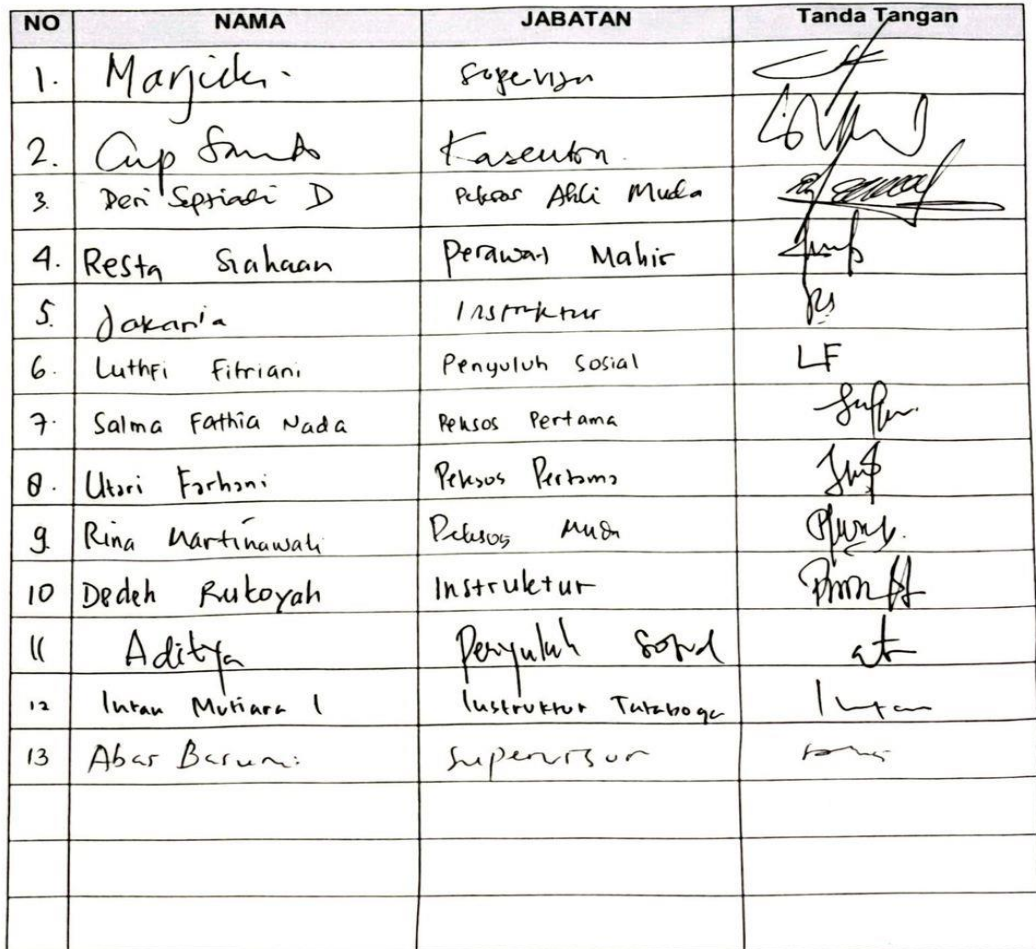 NO NAMA JABATAN Tanda Tangan
1. Marjuki. Supervisor
2. Cup Santo
3. Deri Septiadi D Peksos Ahli Muda
4. Resta Siahaan Perawat Mahir
5. Jakaria Instruktur
6. Luthfi Fitriani Penyuluh Sosial LF
7. Salma Fathia Nada Peksos Pertama
8. Utari Farhani Peksos Pertama
9. Rina Martinawati Peksos Muda
10 Dedeh Rukoyah Instruktur
11 Aditya Penyuluh Sosial
12 Intan Mutiara I Instruktur Tataboga Intan
13 Abar Supervisor